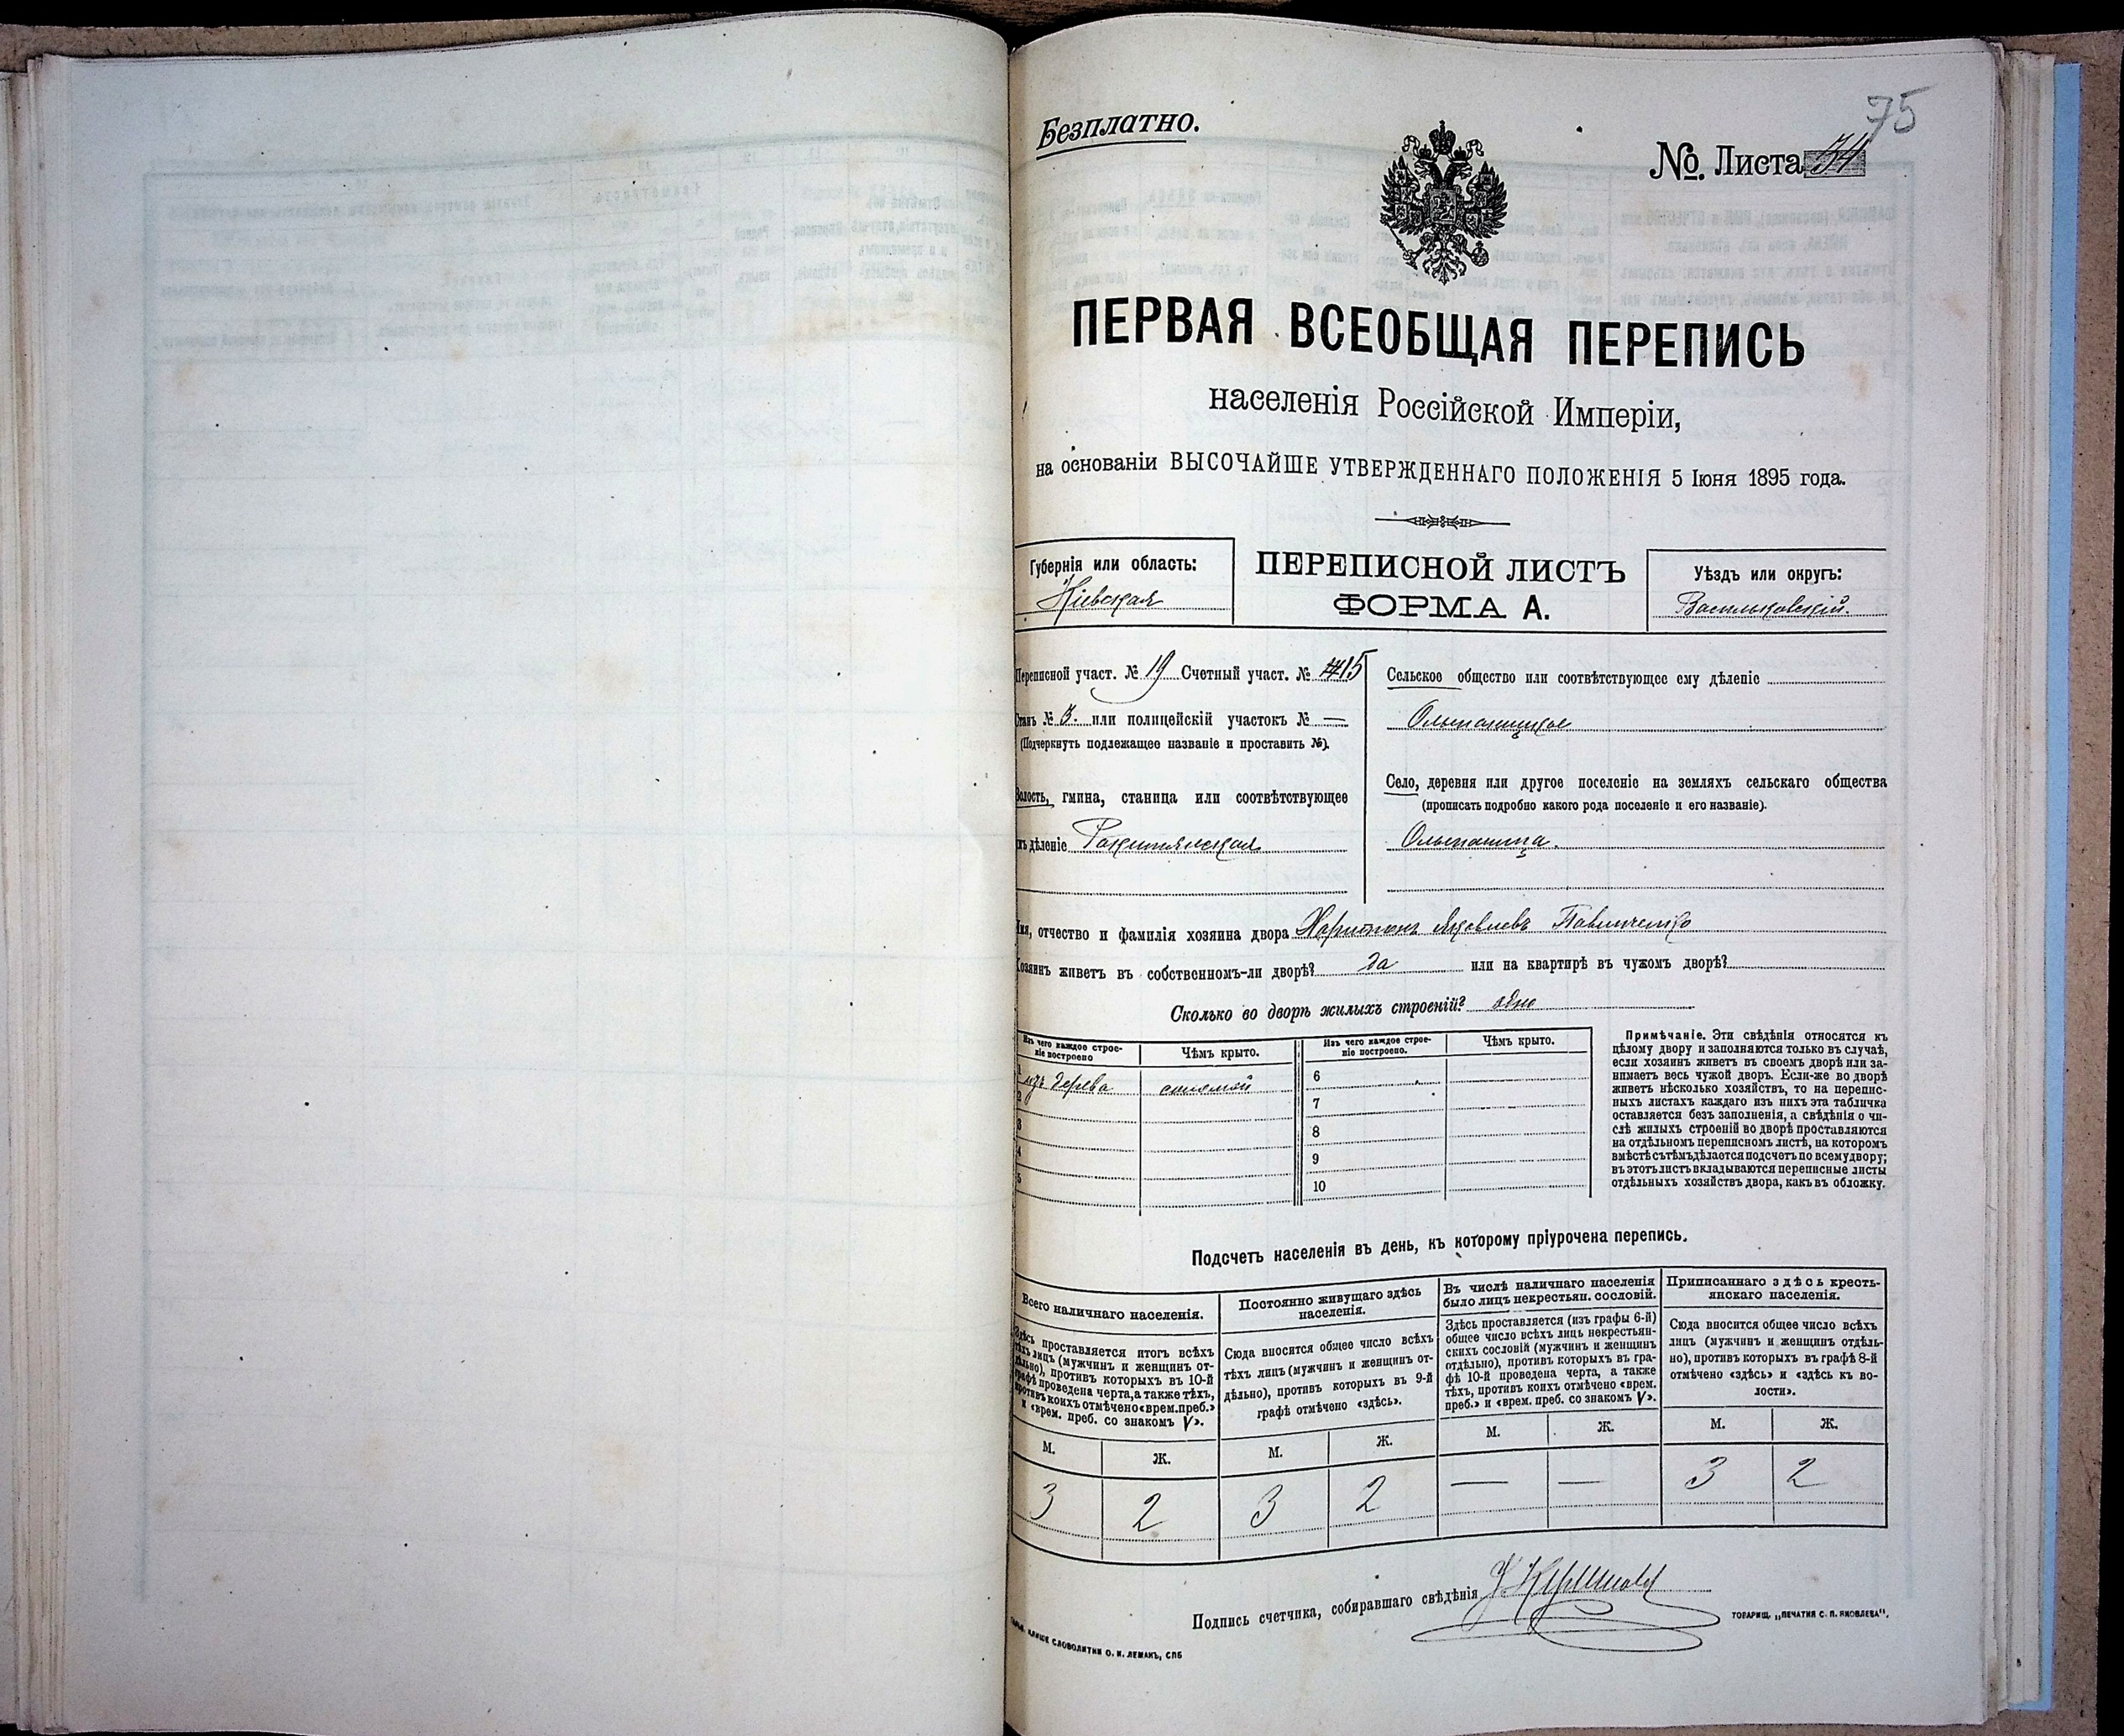 75
Безплатно.
№. Листа 34
ПЕРВАЯ ВСЕОБЩАЯ ПЕРЕПИСЬ
населенія Россійской Имперіи,
на основаніи ВЫСОЧАЙШЕ УТВЕРЖДЕННАГО ПОЛОЖЕНІЯ 5 Іюня 1895 года.
Губернія или область:
Кіевская
ПЕРЕПИСНОЙ ЛИСТЪ
ФОРМА А.
Уѣздъ или округъ:
Васильковскій.
Переписной участ. № 19 Счетный участ. № 15
Станъ № 3. или полицейскій участокъ № —
(Подчеркнуть подлежащее названіе и проставить №).
Волость, гмина, станица или соотвѣтствующее
имъ дѣленіе Ракитянская
Сельское общество или соотвѣтствующее ему дѣленіе
Ольшаницкое
Село, деревня или другое поселеніе на земляхъ сельскаго общества
(прописать подробно какого рода поселеніе и его названіе).
Ольшаница.
Имя, отчество и фамилія хозяина двора Харитонъ Яковлевъ Павличенко
Хозяинъ живетъ въ собственномъ-ли дворѣ? да или на квартирѣ въ чужомъ дворѣ?
Сколько во дворѣ жилыхъ строеній? одно
Изъ чего каждое строе-
ніе построено
Чѣмъ крыто.
Изъ чего каждое строе-
ніе построено.
Чѣмъ крыто.
1 изъ дерева соломой
2
3
4
5
6
7
8
9
10
Примѣчаніе. Эти свѣдѣнія относятся къ
цѣлому двору и заполняются только въ случаѣ,
если хозяинъ живетъ въ своемъ дворѣ или за-
нимаетъ весь чужой дворъ. Если-же во дворѣ
живетъ нѣсколько хозяйствъ, то на перепис-
ныхъ листахъ каждаго изъ нихъ эта табличка
оставляется безъ заполненія, а свѣдѣнія о чи-
слѣ жилыхъ строеній во дворѣ проставляются
на отдѣльномъ переписномъ листѣ, на которомъ
вмѣстѣ съ тѣмъ дѣлается подсчетъ по всему двору;
въ этотъ листъ вкладываются переписные листы
отдѣльныхъ хозяйствъ двора, какъ въ обложку.
Подсчетъ населенія въ день, къ которому пріурочена перепись.
Всего наличнаго населенія.
Здѣсь проставляется итогъ всѣхъ
тѣхъ лицъ (мужчинъ и женщинъ от-
дѣльно), противъ которыхъ въ 10-й
графѣ проведена черта, а также тѣхъ,
противъ коихъ отмѣчено «врем. преб.»
и «врем. преб. со знакомъ V».
М. Ж.
3 2
Постоянно живущаго здѣсь
населенія.
Сюда вносится общее число всѣхъ
тѣхъ лицъ (мужчинъ и женщинъ от-
дѣльно), противъ которыхъ въ 9-й
графѣ отмѣчено «здѣсь».
М. Ж.
3 2
Въ числѣ наличнаго населенія
было лицъ некрестьян. сословій.
Здѣсь проставляется (изъ графы 6-й)
общее число всѣхъ лицъ некрестьян-
скихъ сословій (мужчинъ и женщинъ
отдѣльно), противъ которыхъ въ гра-
фѣ 10-й проведена черта, а также
тѣхъ, противъ коихъ отмѣчено «врем.
преб.» и «врем. преб. со знакомъ V».
М. Ж.
— —
Приписаннаго здѣсь кресть-
янскаго населенія.
Сюда вносится общее число всѣхъ
лицъ (мужчинъ и женщинъ отдѣль-
но), противъ которыхъ въ графѣ 8-й
отмѣчено «здѣсь» и «здѣсь къ во-
лости».
М. Ж.
3 2
Подпись счетчика, собиравшаго свѣдѣнія
КЛИШЕ СЛОВОЛИТНИ О. И. ЛЕМАНЪ, СПБ
ТОВАРИЩ. „ПЕЧАТНЯ С. П. ЯКОВЛЕВА".